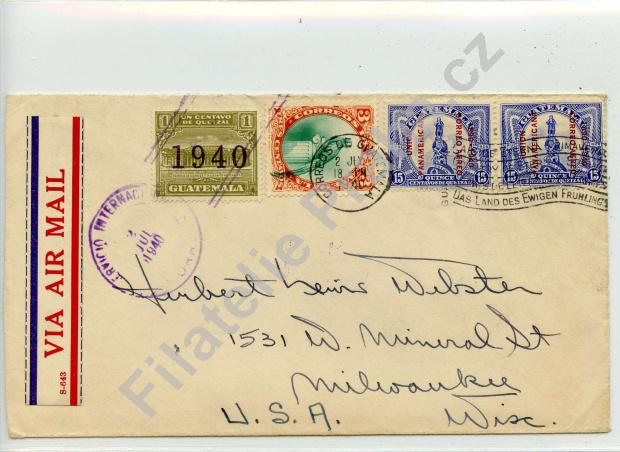 1
UN CENTAVO
DE QUETZAL
1
1940
GUATEMALA
3
CORREOS
3
CORREOS DE GUATEMALA
2 JUL
GUATEMALA
UNION
PANAMERICANA
CORREO AEREO
15
QUINCE
15
CENTAVOS DE QUETZAL
GUATEMALA
UNION
PANAMERICANA
CORREO AEREO
15
QUINCE
15
CENTAVOS DE QUETZAL
DAS LAND DES EWIGEN FRÜHLINGS
VIA AIR MAIL
S-643
SERVICIO INTERNACI
JUL
1940
Herbert Lewis Webster
1531 W. Mineral St
Milwaukee
U.S.A. Wisc.
Filatelie Pilát.cz